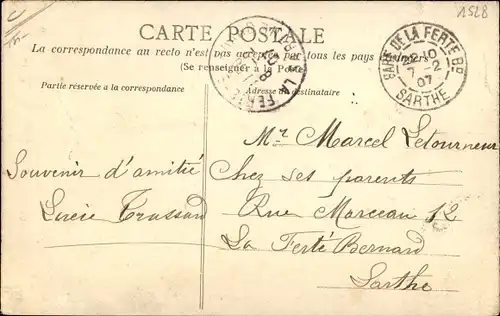 1528
CARTE POSTALE
La correspondance au recto n'est pas acceptée par tous les pays étrangers
(Se renseigner à la Poste)
Partie réservée à la correspondance
Adresse du destinataire
GARE DE LA FERTE-BD
7-2
07
SARTHE
LA FERTE
Mr. Marcel Letourneur
Souvenir d'amitié
Chez ses parents
Lucie Trassard
Rue Marceau 12
La Ferté Bernard
Sarthe